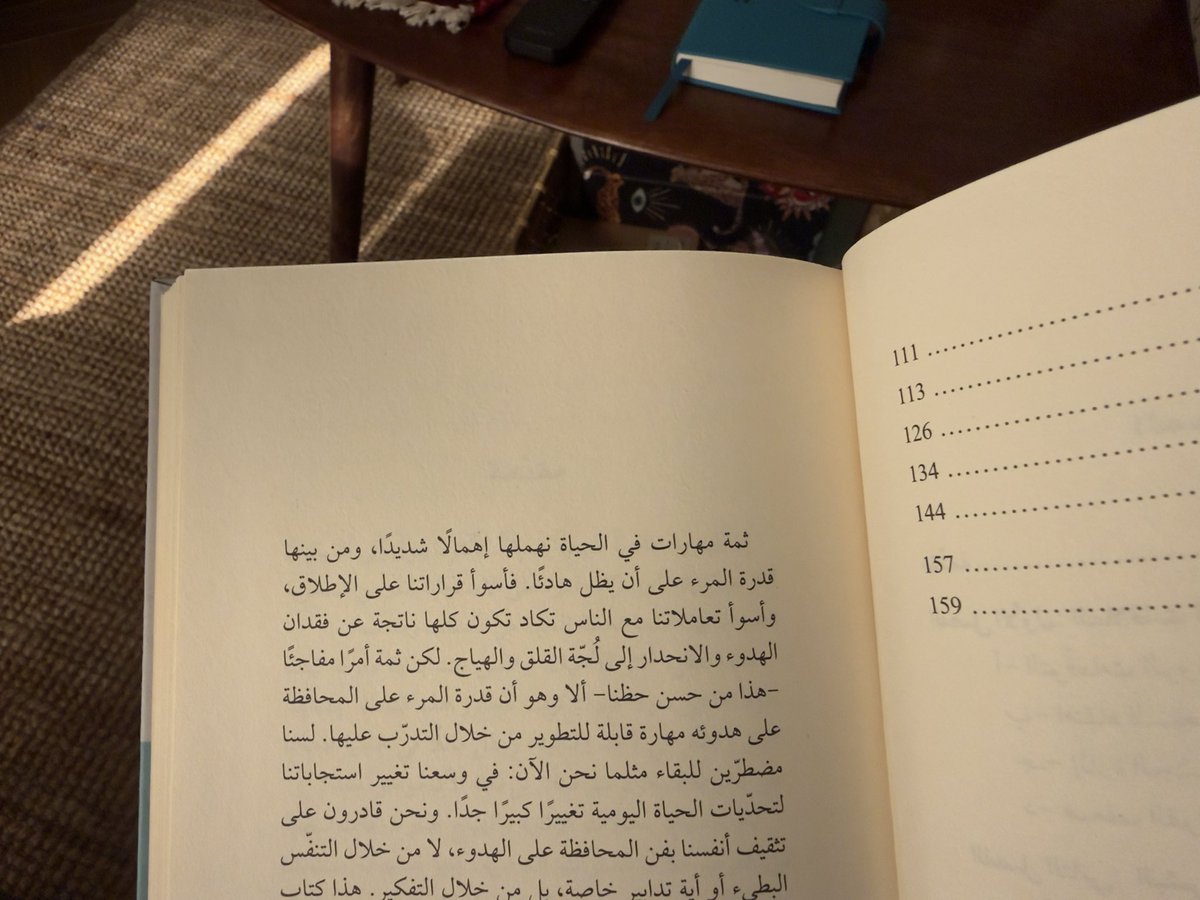 111 ..............................
113 ..............................
126 ..............................
134 ..............................
144 ..............................
157 ..............................
159 ..............................
ثمة مهارات في الحياة نهملها إهمالًا شديدًا، ومن بينها
قدرة المرء على أن يظل هادئًا. فأسوأ قراراتنا على الإطلاق،
وأسوأ تعاملاتنا مع الناس تكاد تكون كلها ناتجة عن فقدان
الهدوء والانحدار إلى لُجّة القلق والهياج. لكن ثمة أمرًا مفاجئًا
-هذا من حسن حظنا- ألا وهو أن قدرة المرء على المحافظة
على هدوئه مهارة قابلة للتطوير من خلال التدرّب عليها. لسنا
مضطرّين للبقاء مثلما نحن الآن: في وسعنا تغيير استجاباتنا
لتحدّيات الحياة اليومية تغييرًا كبيرًا جدًا. ونحن قادرون على
تثقيف أنفسنا بفن المحافظة على الهدوء، لا من خلال التنفّس
البطيء أو أية تدابير خاصة، بل من خلال التفكير. هذا كتاب